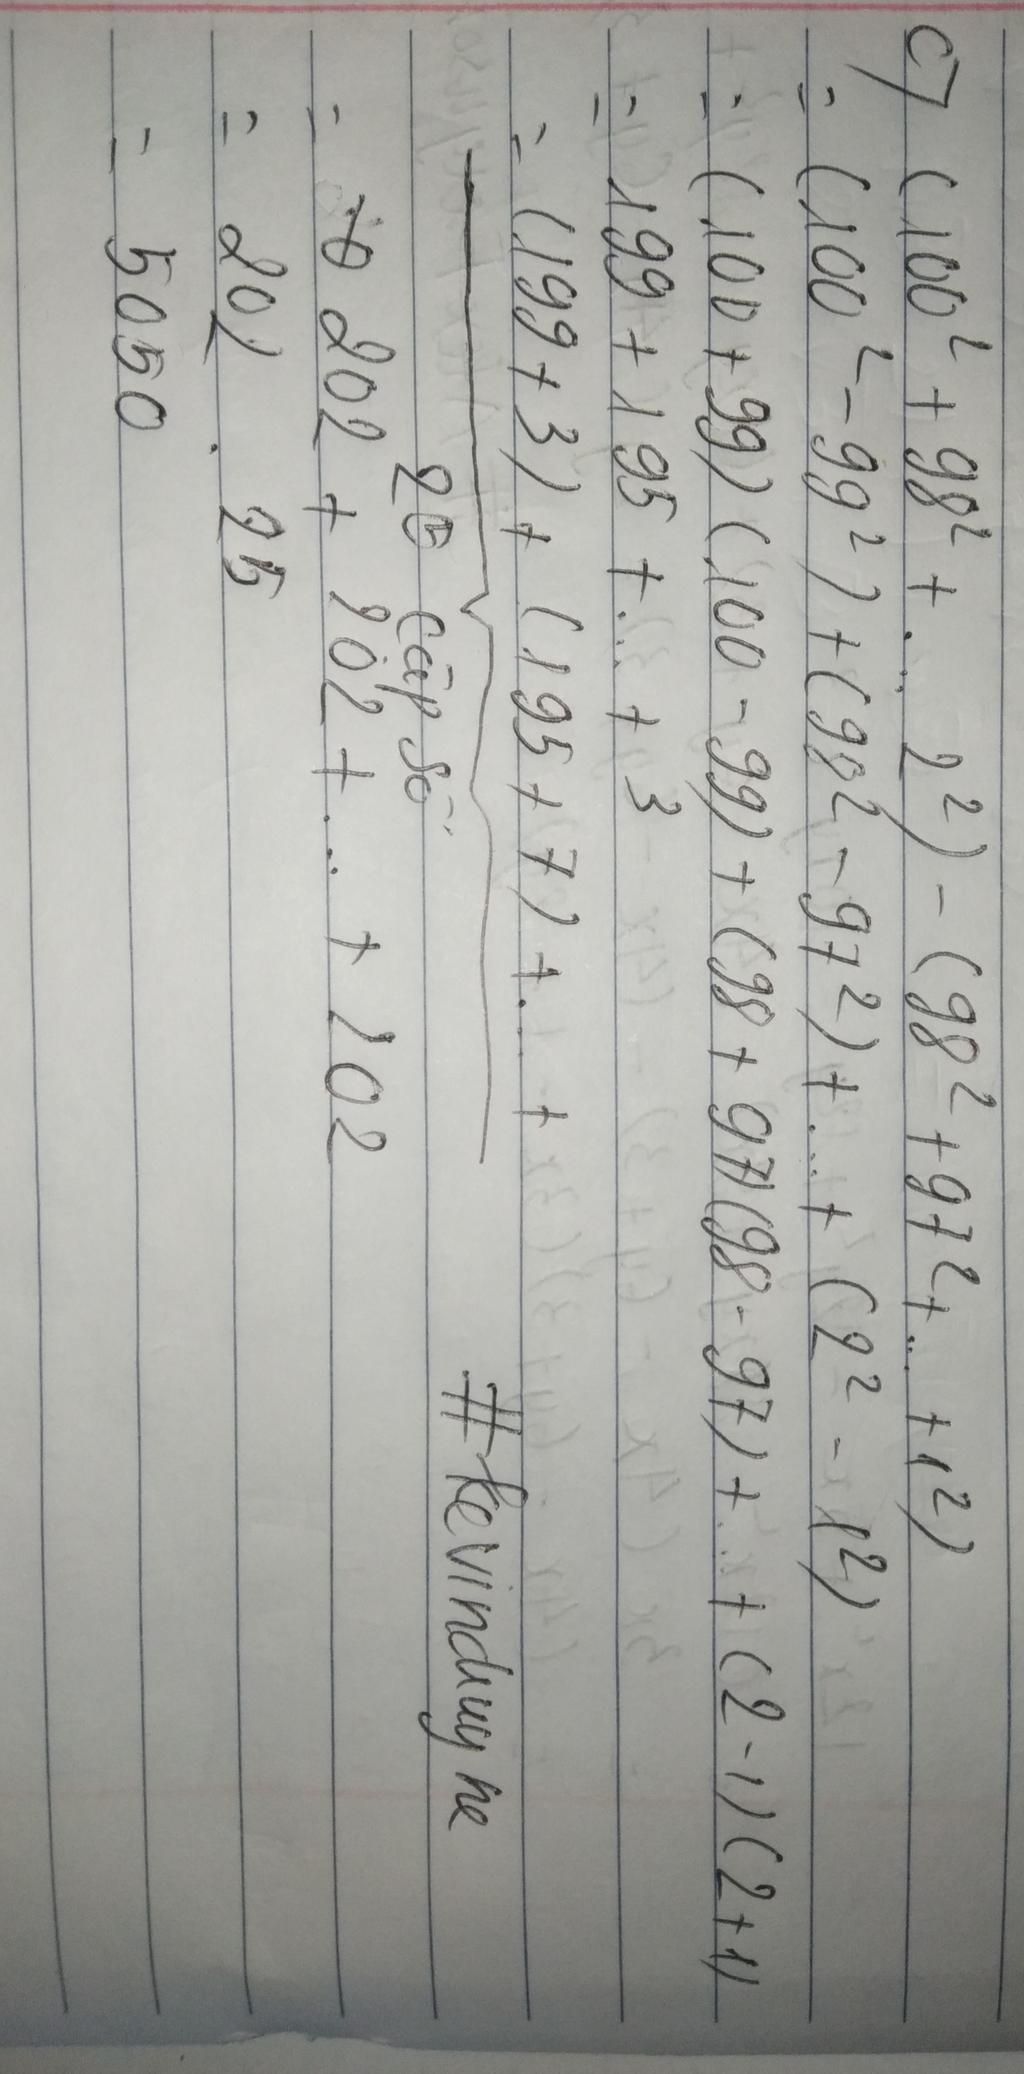 c) (100² + 98² + ... 2²) - (98² + 97² + ... + 1²)
= (100² - 99²) + (98² - 97²) + ... + (2² - 1²)
= (100 + 99) (100 - 99) + (98 + 97) (98 - 97) + ... + (2 - 1) (2 + 1)
= 199 + 195 + ... + 3
= (199 + 3) + (195 + 7) + ... +
25 cặp số
#kevinduy he
= 202 + 202 + ... + 202
= 202 . 25
= 5050